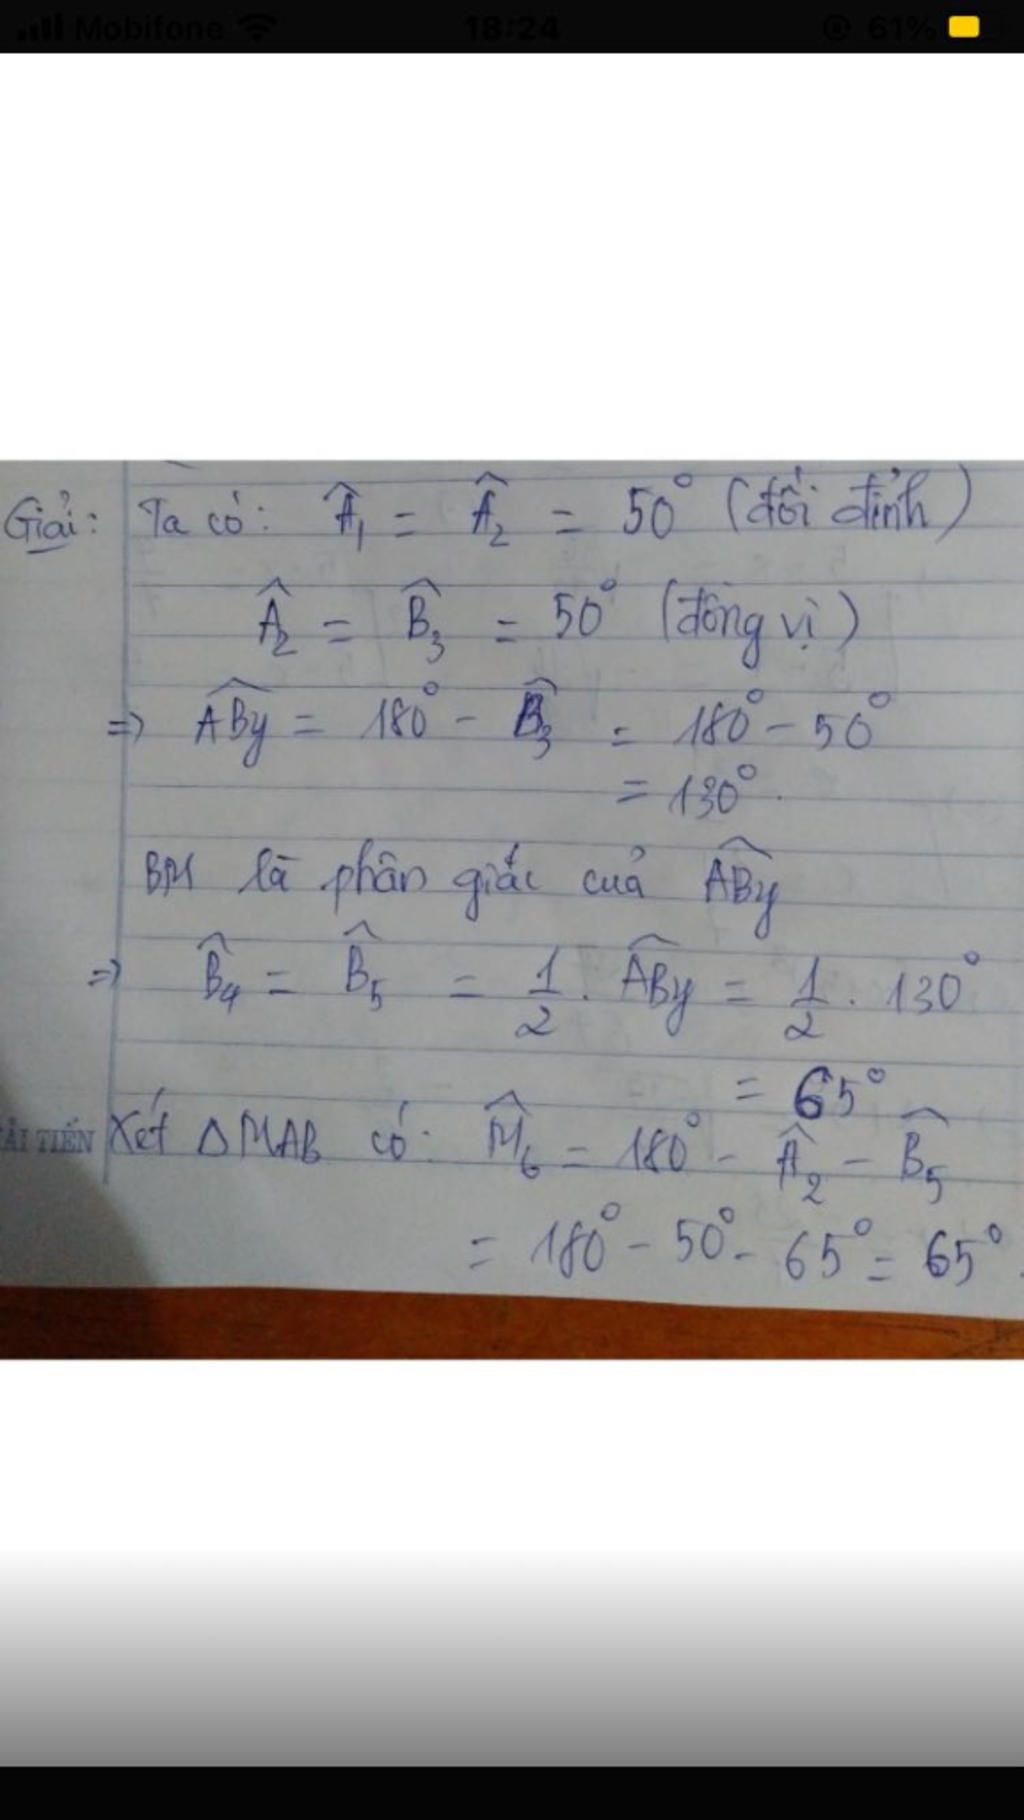 Mobifone 18:24 61%
Giải: Ta có: Â₁ = Â₂ = 50° (đối đỉnh)
Â₂ = B̂₃ = 50° (đồng vị)
=> ABŷ = 180° - B̂₃ = 180° - 50°
= 130°.
BM là phân giác của ABŷ
=> B̂₄ = B̂₅ = 1/2 . ABŷ = 1/2 . 130°
= 65°
ẢI TIẾN Xét ΔMAB có: M̂₆ = 180° - Â₂ - B̂₅
= 180° - 50° - 65° = 65°.